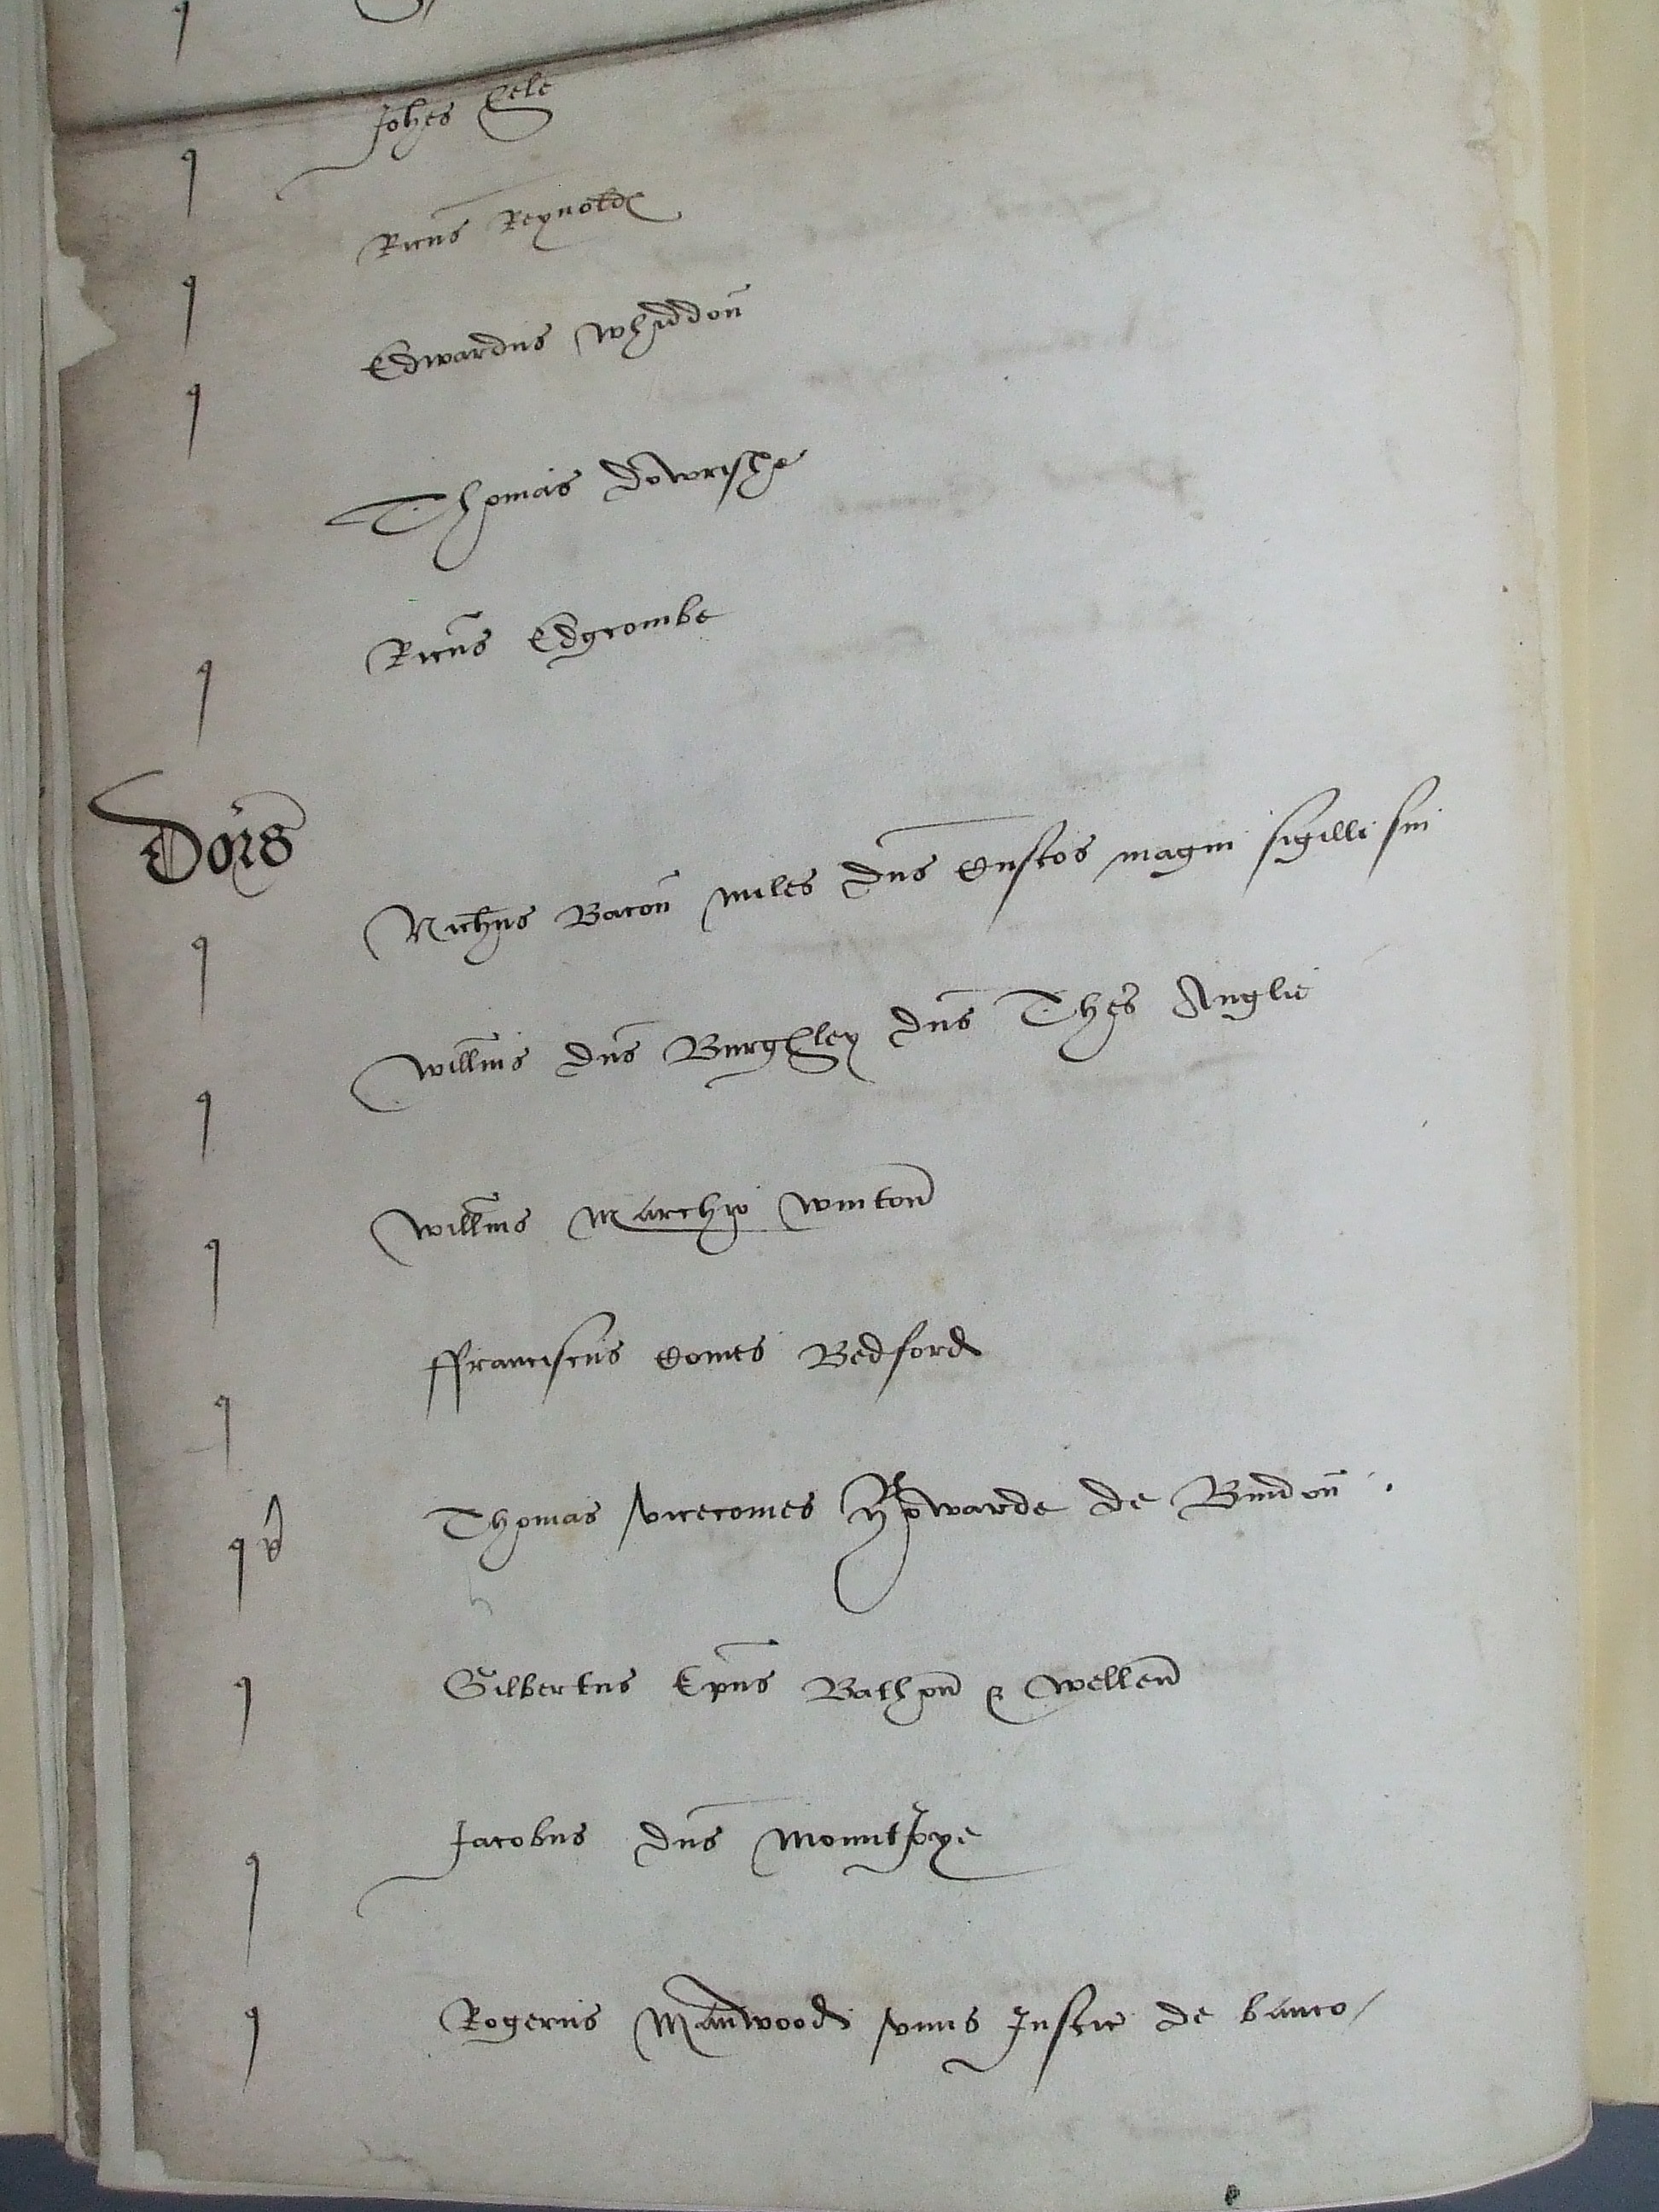 Johes Cele
Ricus Reynold
Edwardus Whiddon
Thomas Dowrishe
Ricus Edgcombe
Dors
Nichus Bacon miles dns Custos magni sigilli sui
Willms dns Burghley dns Thes Anglie
Willms Marchio Winton
ffranciscus Comes Bedford
Thomas vicecomes Howarde de Bindon
Gilbertus Epus Bathon & Wellen
Jacobus dns Mountjoye
Rogerus Manwood vnus Justic de banco